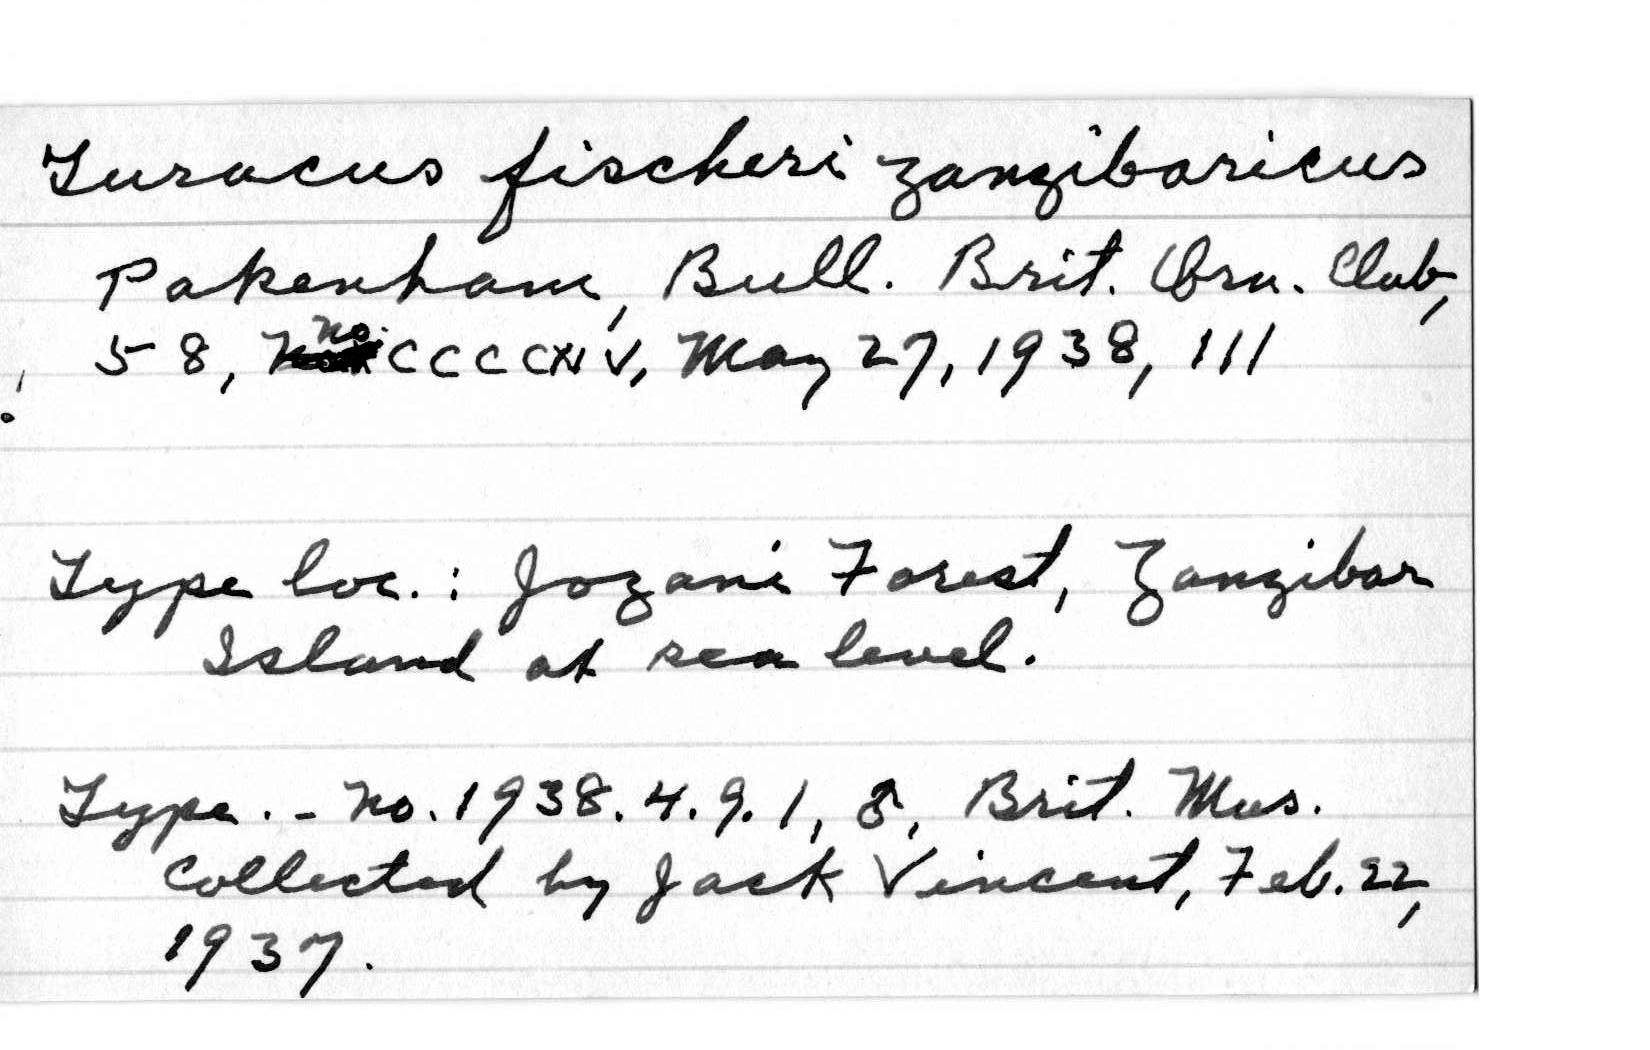 Turacus fischeri zanzibaricus
Pakenham, Bull. Brit. Orn. Club,
58, no. CCCCXIV, May 27, 1938, 111
Type loc.: Jozani Forest, Zanzibar
Island at sea level.
Type. - No. 1938.4.9.1, ♂, Brit. Mus.
Collected by Jack Vincent, Feb. 22,
1937.